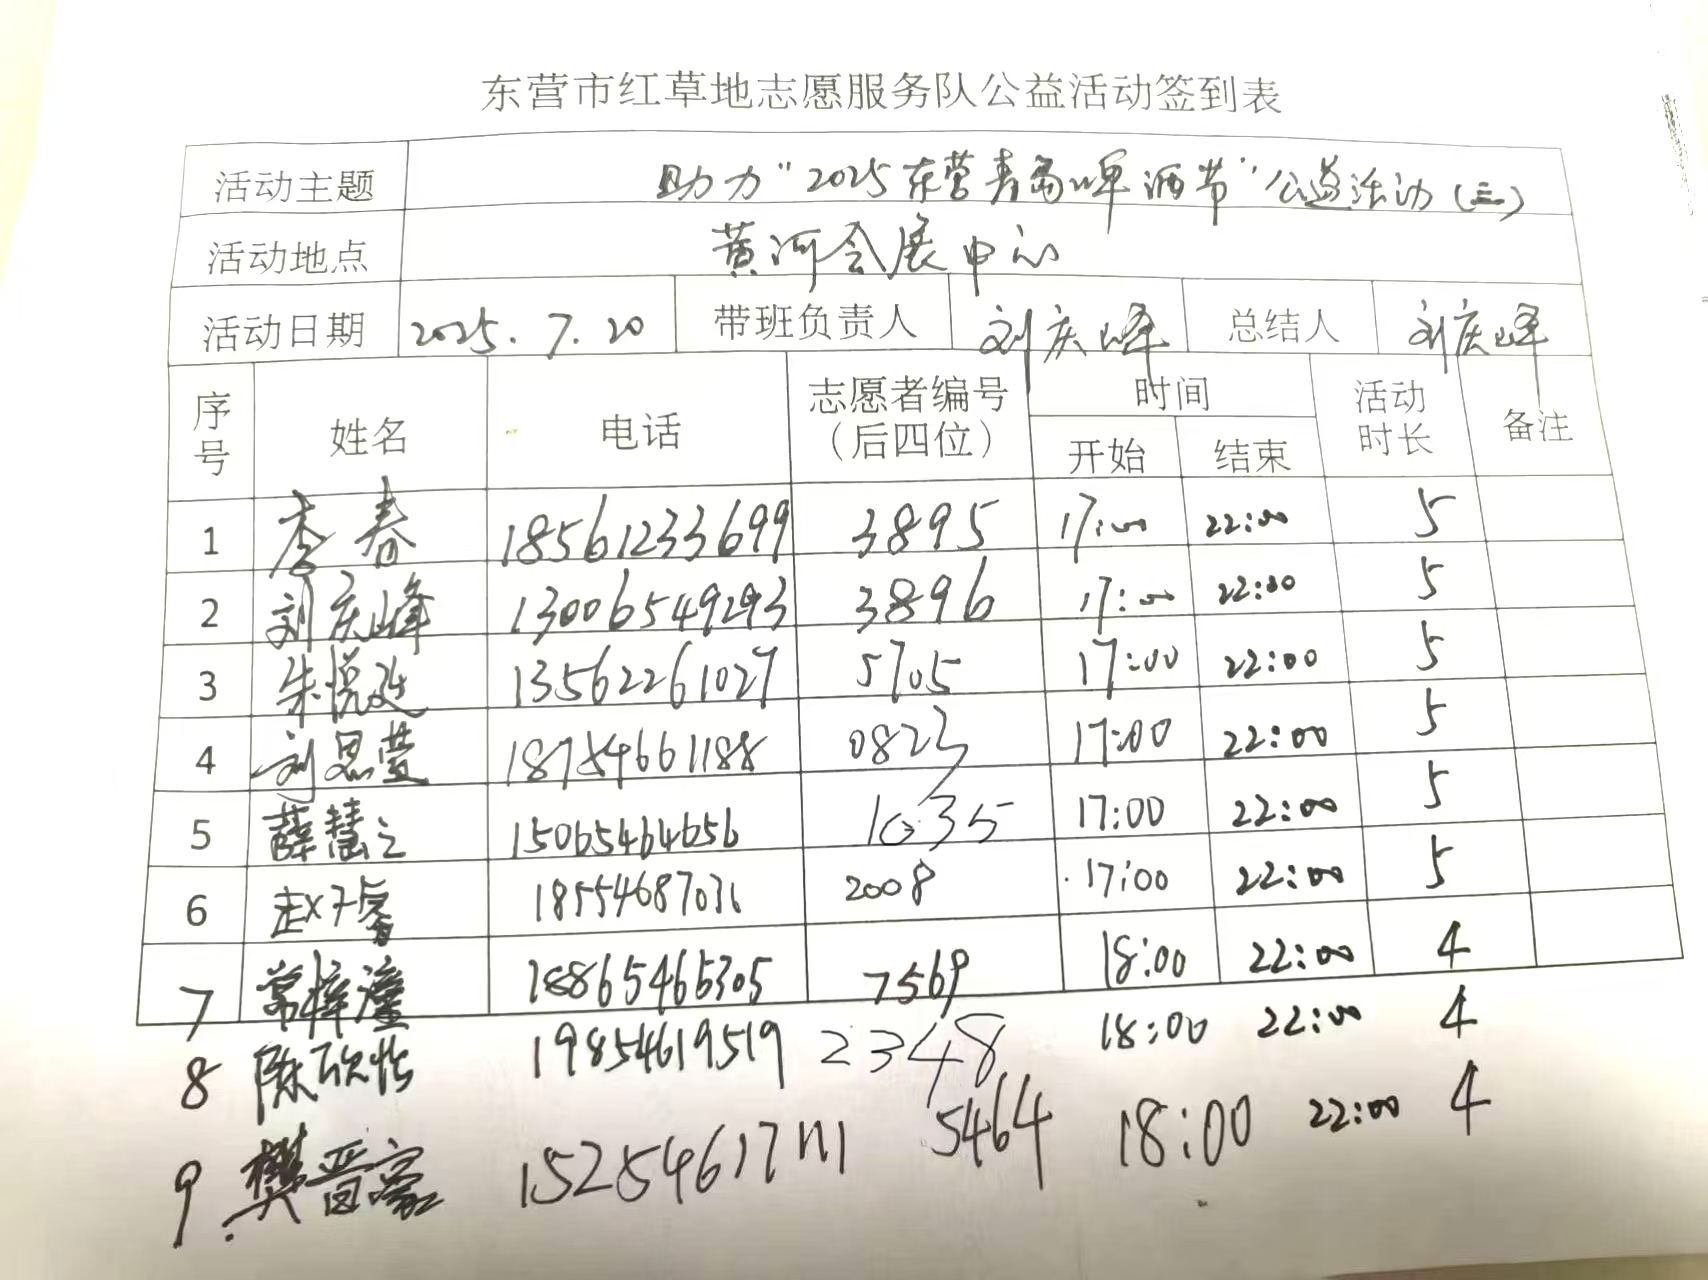 东营市红草地志愿服务队公益活动签到表
活动主题 助力“2025东营青岛啤酒节”公益活动(三)
活动地点 黄河会展中心
活动日期 2025.7.20 带班负责人 刘庆峰 总结人 刘庆峰
序号 姓名 电话 志愿者编号（后四位） 时间 开始 结束 活动时长 备注
1 李春 18561233699 3895 17:00 22:00 5
2 刘庆峰 13006549293 3896 17:00 22:00 5
3 朱悦廷 13562261027 5705 17:00 22:00 5
4 刘思莹 18754661188 0823 17:00 22:00 5
5 薛慧之 15065464656 1035 17:00 22:00 5
6 赵子睿 18554687031 2008 17:00 22:00 5
7 常梓潼 18865465305 7569 18:00 22:00 4
8 陈欣怡 19854619519 2348 18:00 22:00 4
9 樊晋豪 15254617111 5464 18:00 22:00 4